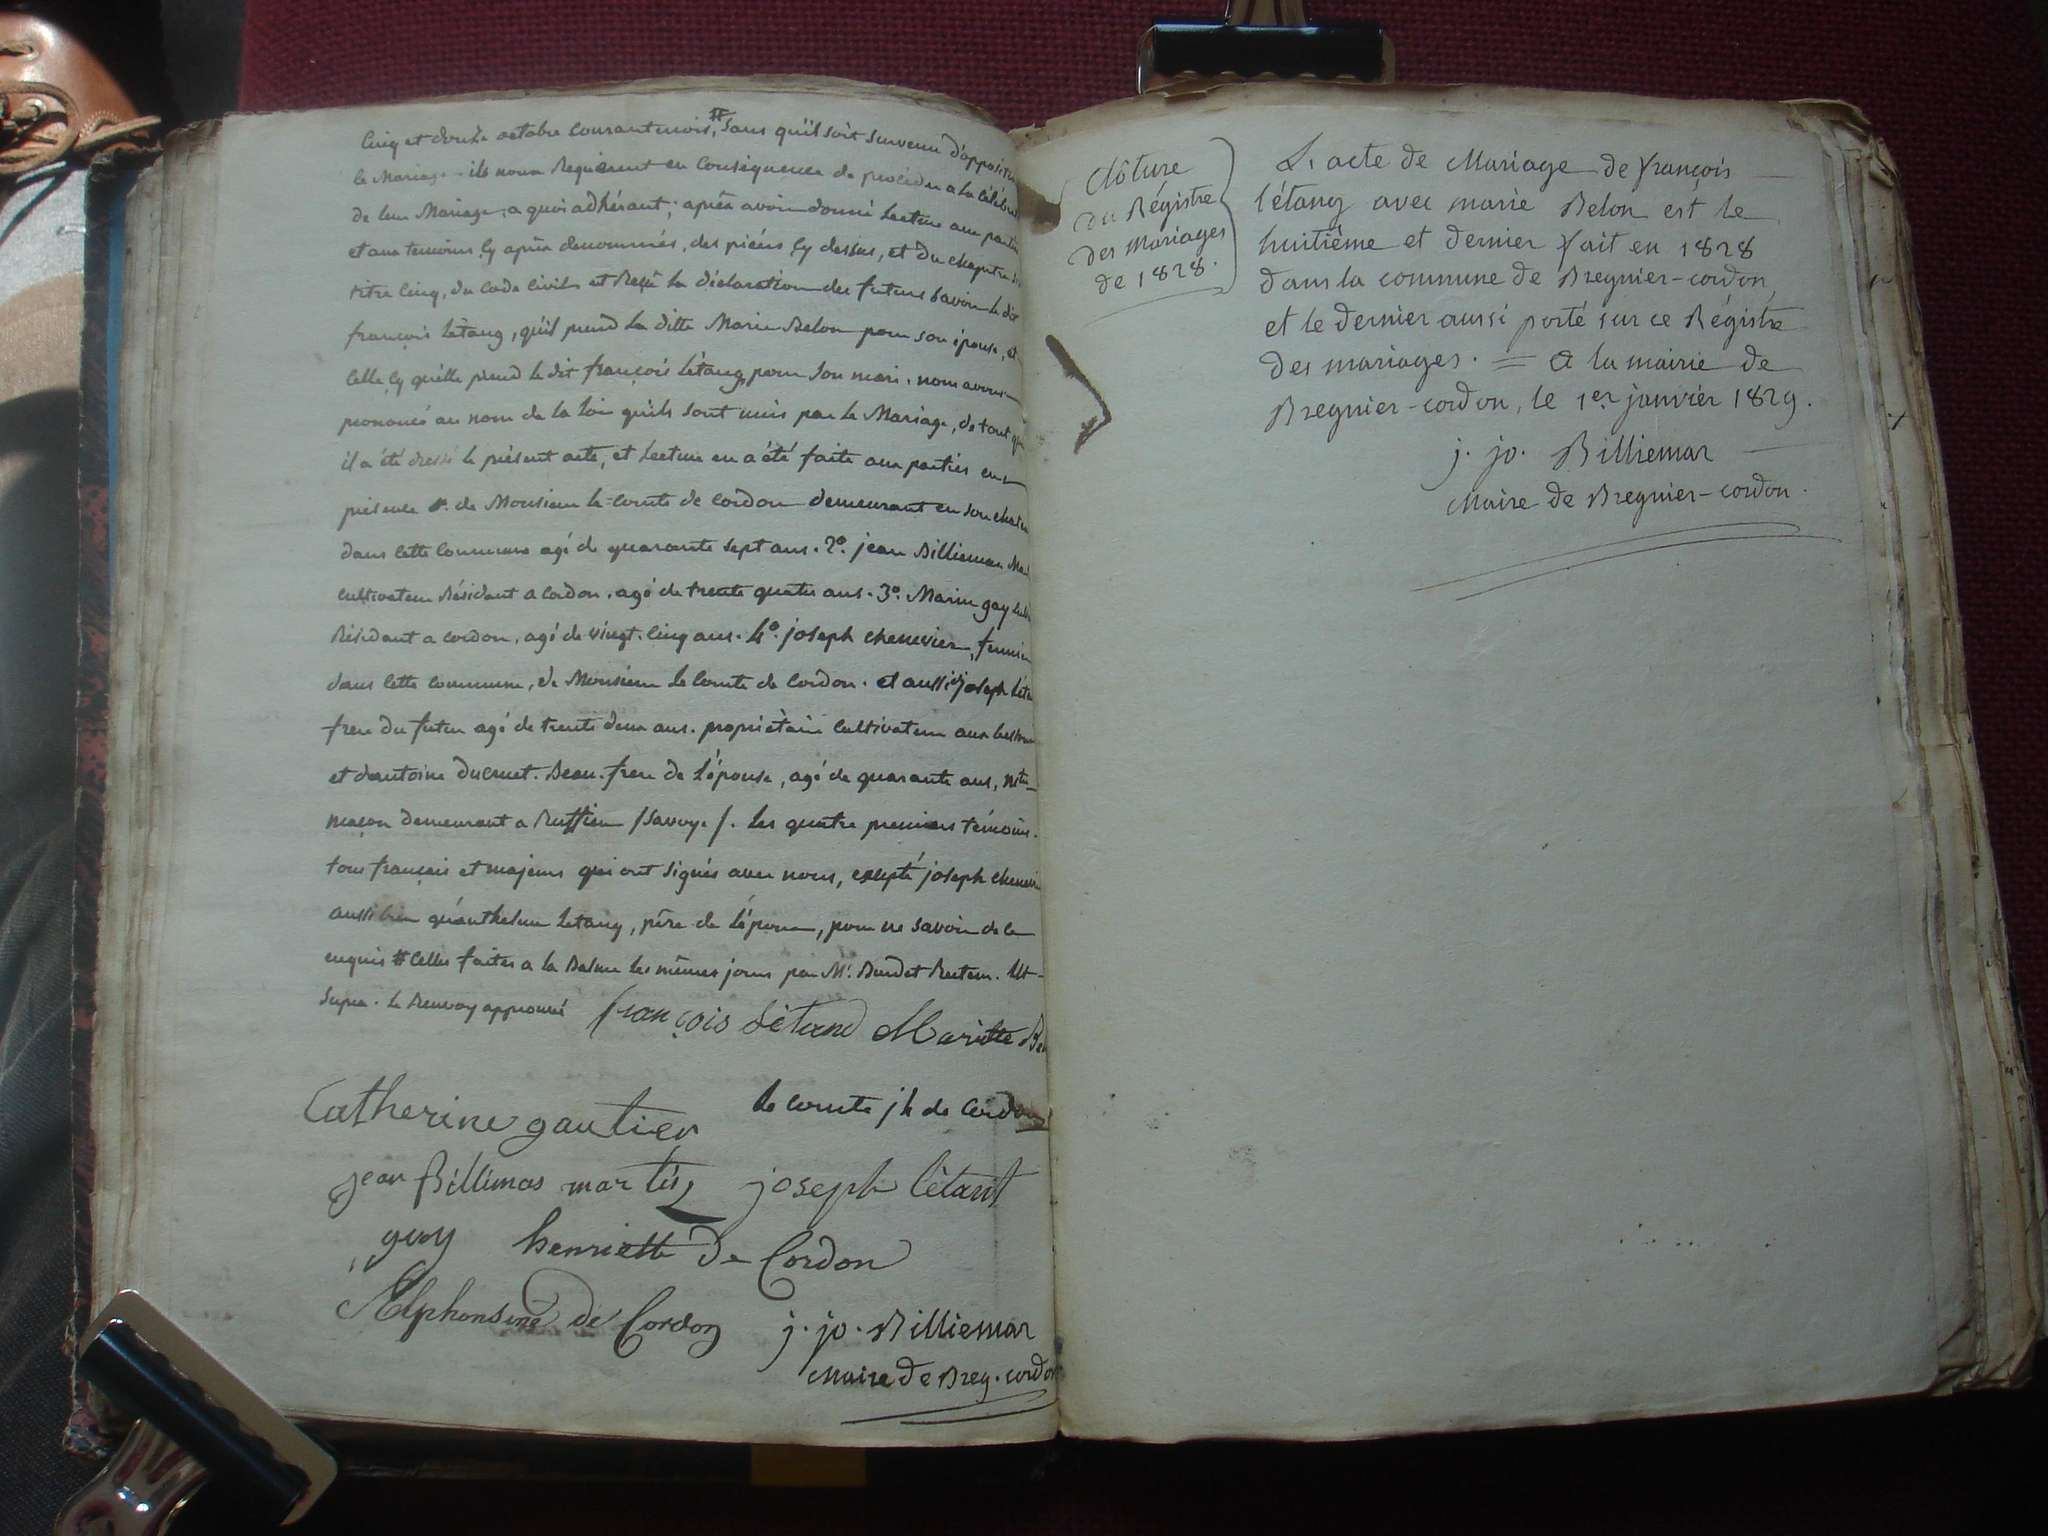 Cinq et douze octobre courant mois, # sans qu'il soit survenu d'opposition
le Mariage. ils nous Requierent en Conséquence de procéder a la Célébra
de leur Mariage, a quoi adhérant; après avoir donné Lecture aux parties
et aux temoins Cy après denommés, des pièces Cy dessus, et du chapitre
titre Cinq, du Code Civil et Reçu la déclaration des futurs Savoir le dit
françois Létang, qu'il prend La ditte Marie Belon pour son épouse, et
Celle Cy qu'elle prend le dit françois Létang pour Son mari. nous avons
prononcé au nom de la Loi qu'ils sont unis par le Mariage, de tout quoi
il a été dressé le présent acte, et Lecture en a été faite aux parties en
présence de Monsieur le Comte de Cordon demeurant en son chateau
dans Cette Commune agé de quarante sept ans. 2o. jean Billiemas
Cultivateur Résidant a Cordon. agé de trente quatre ans. 3o. Marin gay
Résidant a cordon, agé de vingt. Cinq ans. 4o. joseph chenevier, fermier
dans Cette Commune, de Monsieur Le Comte de Cordon. et aussi joseph Léta
frere du futur agé de trente deux ans. propriétaire Cultivateur aux
et d'antoine ducruet. Beau. frere de L'épouse, agé de quarante ans,
maçon demeurant a Ruffieu /Savoye/. Les quatre premiers témoins.
tous français et majeurs qui ont signés avec nous, excepté joseph chenevier
aussi bien qu'anthelme Letang, père de L'époux, pour ne savoir de ce
enquis # Celles faites a la Balme les mêmes jours par Mr. Burdet Recteur. Ut-
Supra. le Renvoy approuvé françois Létand Mariette Be
Catherine gautier le comte jh de Cordon
jean Billimas martin joseph létant
gay henriette de Cordon
Alphonsine de Cordon j. jo. Billiemas
Maire de Breg. cordon
Clôture
du Régistre
des Mariages
de 1828.
L'acte de Mariage de françois
létang avec marie Belon est le
huitième et dernier fait en 1828
dans la commune de Bregnier-cordon,
et le dernier aussi porté sur ce Régistre
des mariages. = a la mairie de
Bregnier-cordon, le 1er janvier 1829.
j. jo. Billiemas
Maire de Bregnier-cordon.